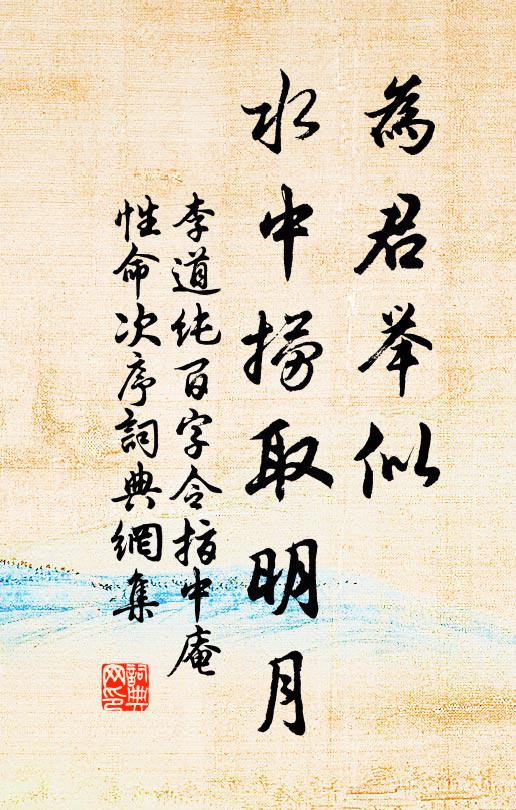 為君举似
水中撈取明月
李道纯百字令指中庵
性命次序詞典網集
詞典网印